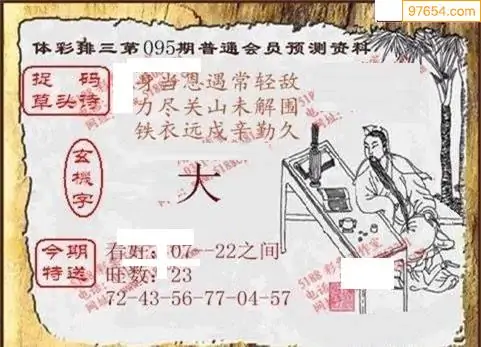 97654.com
体彩排三第095期普通会员预测资料
捉码
草头诗
身当恩遇常轻敌
力尽关山未解围
铁衣远戍辛勤久
玄機字
大
今期
特送
看好：07--22之间
旺数：23
72-43-56-77-04-57